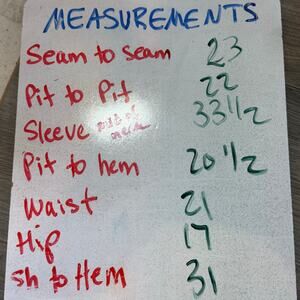 MEASUREMENTS
Seam to seam 23
Pit to Pit 22
Sleeve 33 1/2
Pit to hem 20 1/2
Waist 21
Hip 17
sh to Hem 31